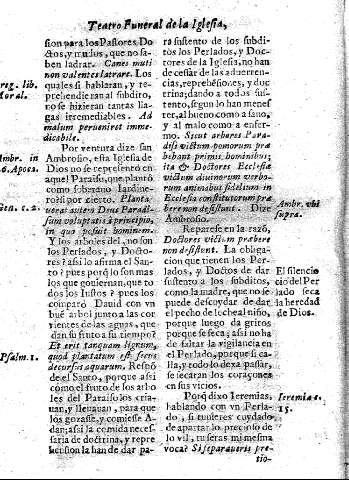 Teatro Funeral de la Iglesia,
sion para los Pastores Do
ctos, y mudos, que no sa-
ben ladrar. Canes muti
non valentes latrare. Los
quales si hablaran, y re
prehendieran al subdito,
no se hizieran tantas lla-
gas irremediables. Ad
malum perueniret imme-
dicabile.
Por ventura dize san
Ambrosio, esta Iglesia de
Dios no se representò en
aquel Paraiso, que plantò
como soberano Iardine-
ro? si por cierto. Planta
uerat autem Deus Paradi
sum voluptatis à principio,
in quo posuit hominem.
Y los arboles del, no son
los Perlados, y Docto-
res? asi lo afirma el San-
to? pues porq̃ lo son mas
los que gouiernan, que to
dos los Iustos? pues los
comparò Dauid con vn
buẽ arbol junto a las cor
rientes de las aguas, que
dan su fruto a su tiempo?
Et erit tanquam lignum,
quod plantatum est secus
decursus aquarum. Respõ
de el Santo, porque asi
como el fruto de los arbo
les del Paraiso los cria-
uan, y lleuauan, para que
los gozasse, y comiesse A-
dan; asi la comida neces-
saria de doctrina, y repre
hension la han de dar pa-
reg. lib.
Moral.
Ambr. in
6. Apoca.
Gen. c. 2.
Psalm. 1.
ra sustento de los subdi-
tos los Perlados, y Doc-
tores de la Iglesia, no han
de cessar de las aduerten-
cias, reprehẽsiones, y do-
ctrina; dando a todos sus-
tento, segun lo han menes
ter, al bueno como a sano,
y al malo como a enfer-
mo. Sicut arbores Paradi-
si victum pomorum præ
behant primis hominibus;
ita & Doctores Ecclesiæ
victum diuinorum verbo-
rum animabus fidelium in
Ecclesia constitutorum præ
bere non desistunt. Dize
Ambrosio.
Reparese en la razõ,
Doctores victum præbere
non desistunt. La obliga-
cion que tienen los Per-
lados, y Doctos de dar
sustento a los subditos,
como la madre, que no se
puede descuydar de dar
el pecho de leche al niño,
porque luego dà gritos
porque se seca; asi no ha
de faltar la vigilancia en
el Perlado, porque si ca-
lla, y todo lo dexa passar,
se secaran los coraçones
en sus vicios.
Porq̃ dixo Ieremias,
hablando con vn Perla-
do, si tuuieres cuydado
de apartar lo precioso de
lo vil, tu seras mi mesma
voca? Si separaueris pre-
tio-
Ambr. vbi
supra.
El silencio
de el Per
lado seca
la heredad
de Dios.
Ieremiæ c.
15.